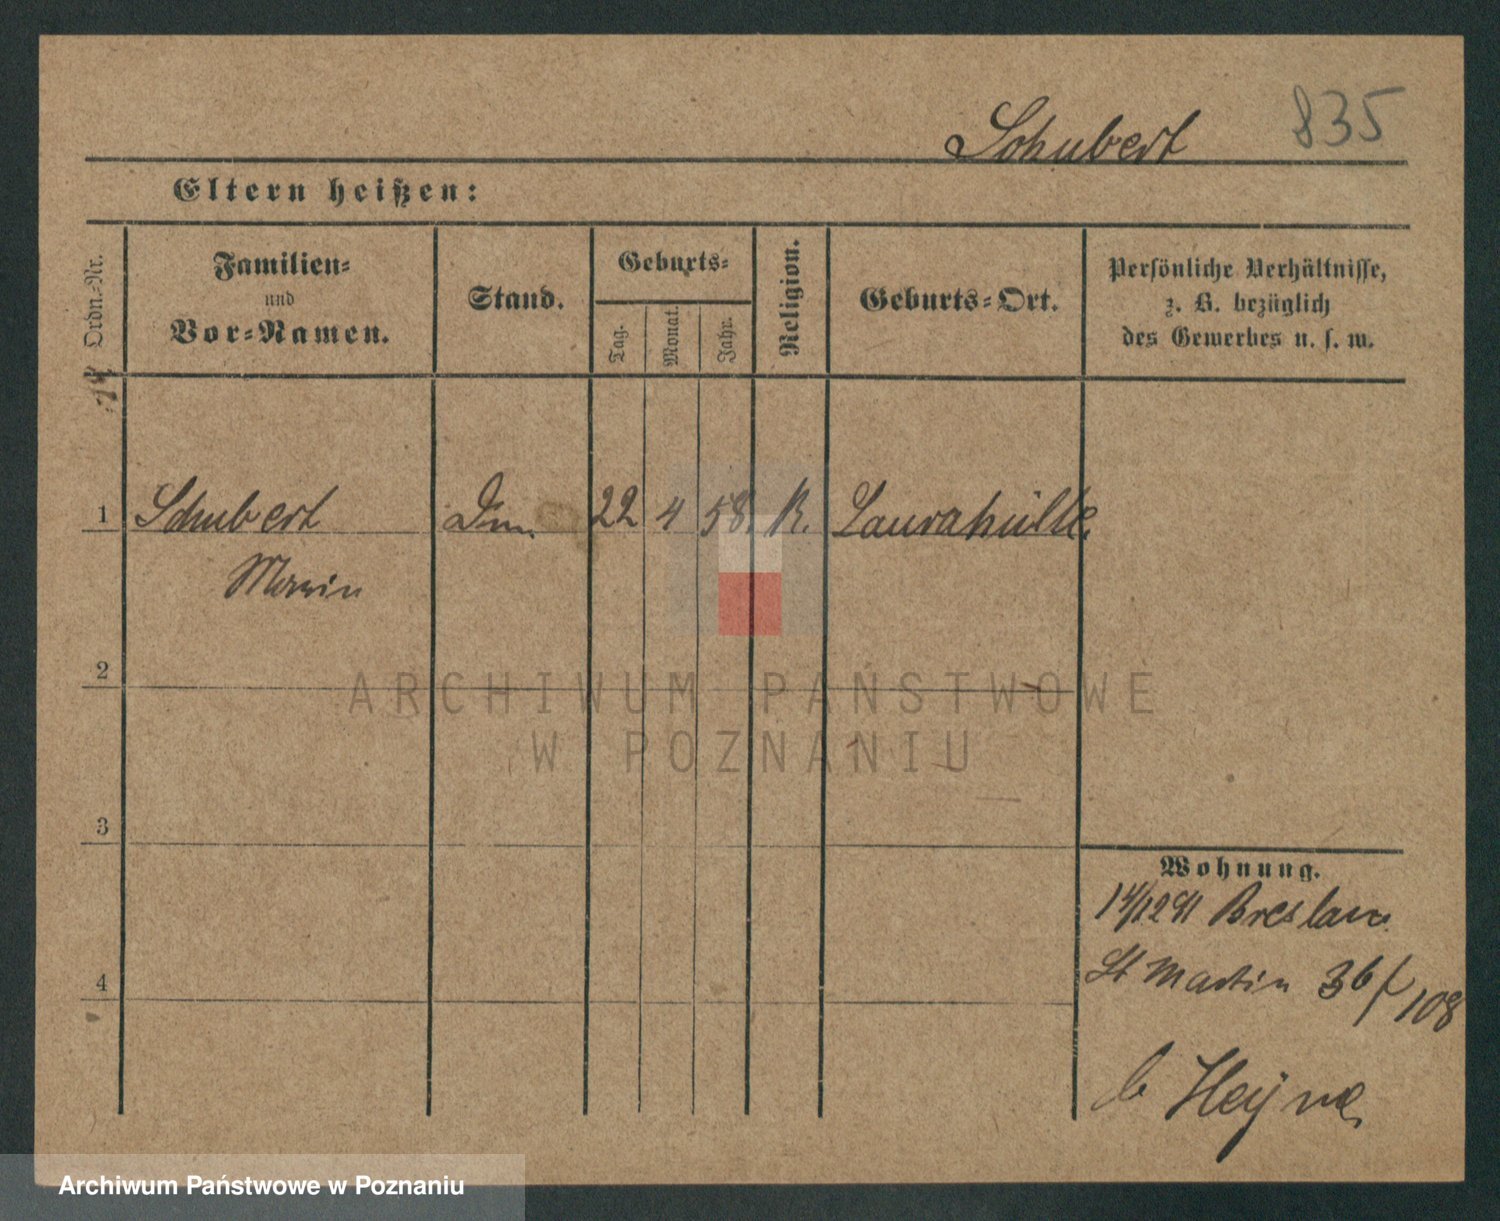 835
Schubert
Eltern heißen:
Ordn.-Nr.
Familien-
und
Vor-Namen.
Stand.
Geburts-
Tag.
Monat.
Jahr.
Religion.
Geburts-Ort.
Persönliche Verhältnisse,
z. B. bezüglich
des Gewerbes u. s. w.
1 Schubert 22 4 58. K. Laurahütte
2
ARCHIWUM PAŃSTWOWE
W POZNANIU
3
Wohnung.
14/12 91 Breslau
4
St Martin 36 / 108
b Heyne
Archiwum Państwowe w Poznaniu